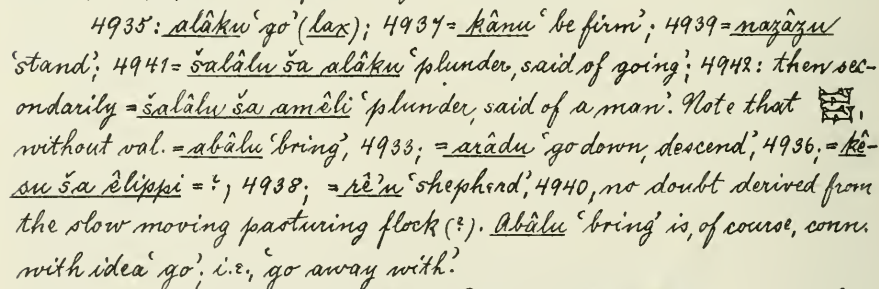 4935: alâku ‘go’ (lax); 4937 = kânu ‘be firm’; 4939 = nazâzu
‘stand’; 4941 = šalâlu ša alâku ‘plunder, said of going’; 4942: then sec-
ondarily = šalâlu ša amêli ‘plunder, said of a man’. Note that
without val. = abâlu ‘bring’, 4933; = arâdu ‘go down, descend’, 4936; = kê-
su ša êlippi = ?, 4938; = rê’u ‘shepherd’, 4940, no doubt derived from
the slow moving pasturing flock (?). Abâlu ‘bring’ is, of course, conn.
with idea ‘go’; i.e., ‘go away with’.